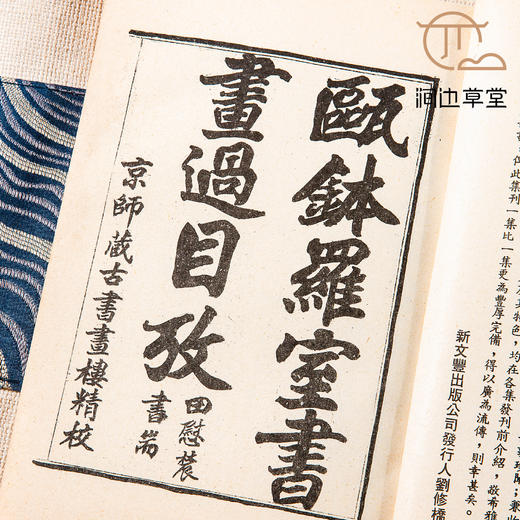 河边草堂
甌鉢羅室書
畫過目攷
田慰農
書耑
京師藏古書畫樓精校
但此集刊一集比一集更為豐厚完備，得以廣為流傳，則幸甚矣。
均在各集發刊前介紹，敬希雅
新文豐出版公司發行人劉修橋